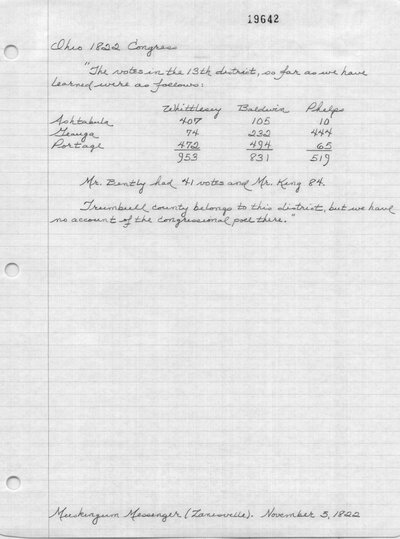 19642
Ohio 1822 Congress
"The votes in the 13th district, so far as we have
learned were as follows:
Whittlesey Baldwin Phelps
Ashtabula 407 105 10
Geauga 74 232 444
Portage 472 494 65
953 831 519
Mr. Bently had 41 votes and Mr. King 84.
Trumbull county belongs to this district, but we have
no account of the congressional poll there."
Muskingum Messenger (Zanesville). November 5, 1822